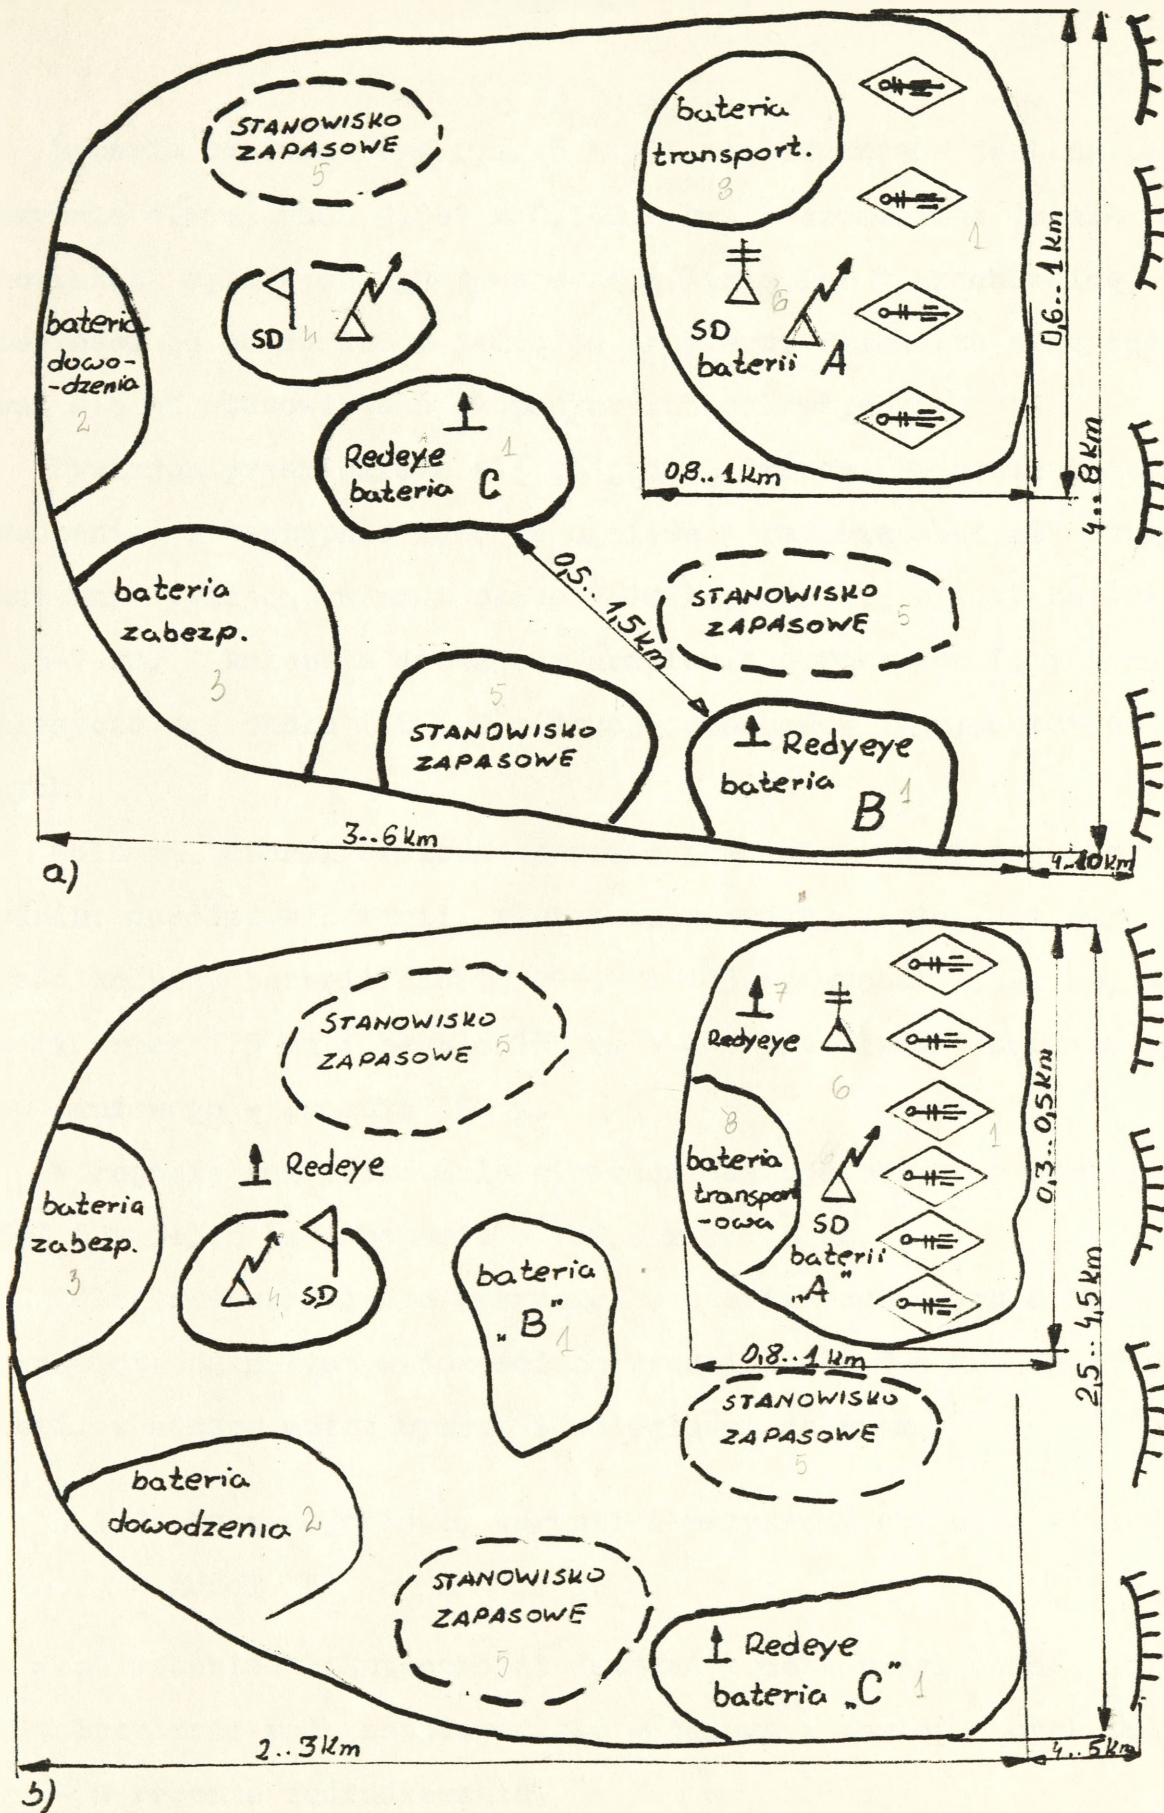 STANOWISKO
ZAPASOWE
5
bateria
transport.
8
1
bateria
dowo-
-dzenia
2
SD
4
6
SD
baterii A
0,6..1km
4..8km
Redeye
bateria C
1
0,8..1km
bateria
zabezp.
3
0,5..1,5km
STANOWISKO
ZAPASOWE
5
5
STANOWISKO
ZAPASOWE
Redyeye
bateria
B
1
3..6km
4..10km
a)
STANOWISKO
ZAPASOWE
5
7
Redyeye
6
1
0,3..0,5km
8
bateria
transport
-owa
6
SD
baterii
„A"
Redeye
bateria
zabezp.
3
4
SD
bateria
„B"
1
2,5..4,5km
0,8..1km
STANOWISKO
ZAPASOWE
5
bateria
dowodzenia
2
STANOWISKO
ZAPASOWE
5
Redeye
bateria „C"
1
2..3km
4..5km
b)